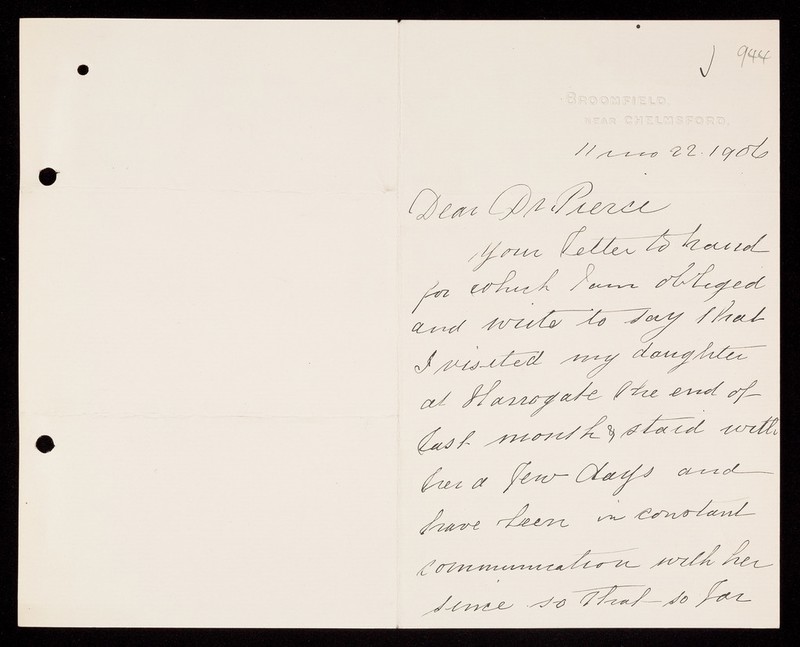 944
BROOMFIELD.
NEAR CHELMSFORD.
11 mo 22. 1906
Dear Dr. Pierce
Your letter to hand
for which I am obliged
and write to say that
I visited my daughter
at Harrogate the end of
last month & staid with
her a few days and
have been in constant
communication with her
since so that so far